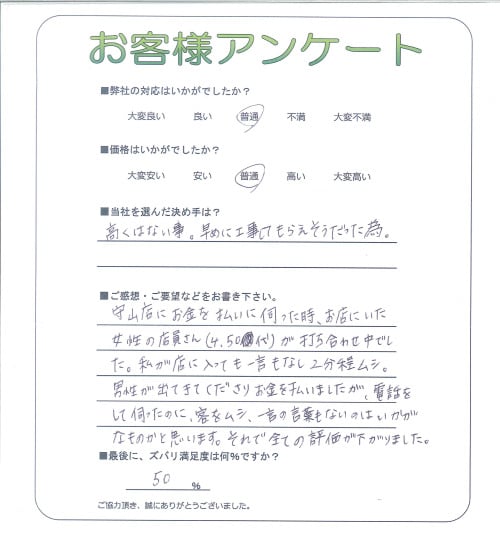 お客様アンケート
■弊社の対応はいかがでしたか？
大変良い 良い 普通 不満 大変不満
■価格はいかがでしたか？
大変安い 安い 普通 高い 大変高い
■当社を選んだ決め手は？
高くはない事。早めに工事してもらえそうだった為。
■ご感想・ご要望などをお書き下さい。
守山店にお金を払いに伺った時、お店にいた
女性の店員さん(4.50代)が打ち合わせ中でし
た。私が店に入っても一言もなし2分程ムシ。
男性が出てきてくださりお金を払いましたが、電話を
して伺ったのに、客をムシ、一言の言葉もないのはいかが
なものかと思います。それで全ての評価が下がりました。
■最後に、ズバリ満足度は何%ですか？
50 %
ご協力頂き、誠にありがとうございました。